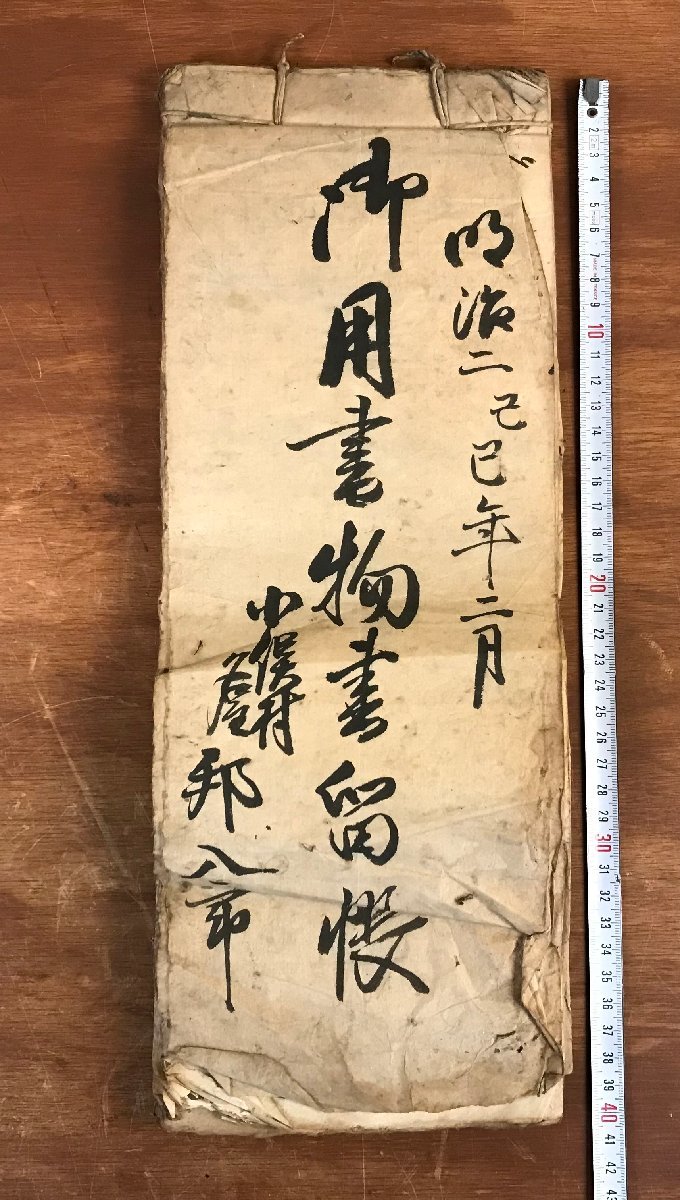 明治二己巳年二月
御用書物書留帳
小俣村
邦八
2 3 4 5 6 7 8 9 10 11 12 13 14 15 16 17 18 19 20 21 22 23 24 25 26 27 28 29 30 31 32 33 34 35 36 37 38 39 40 41 42